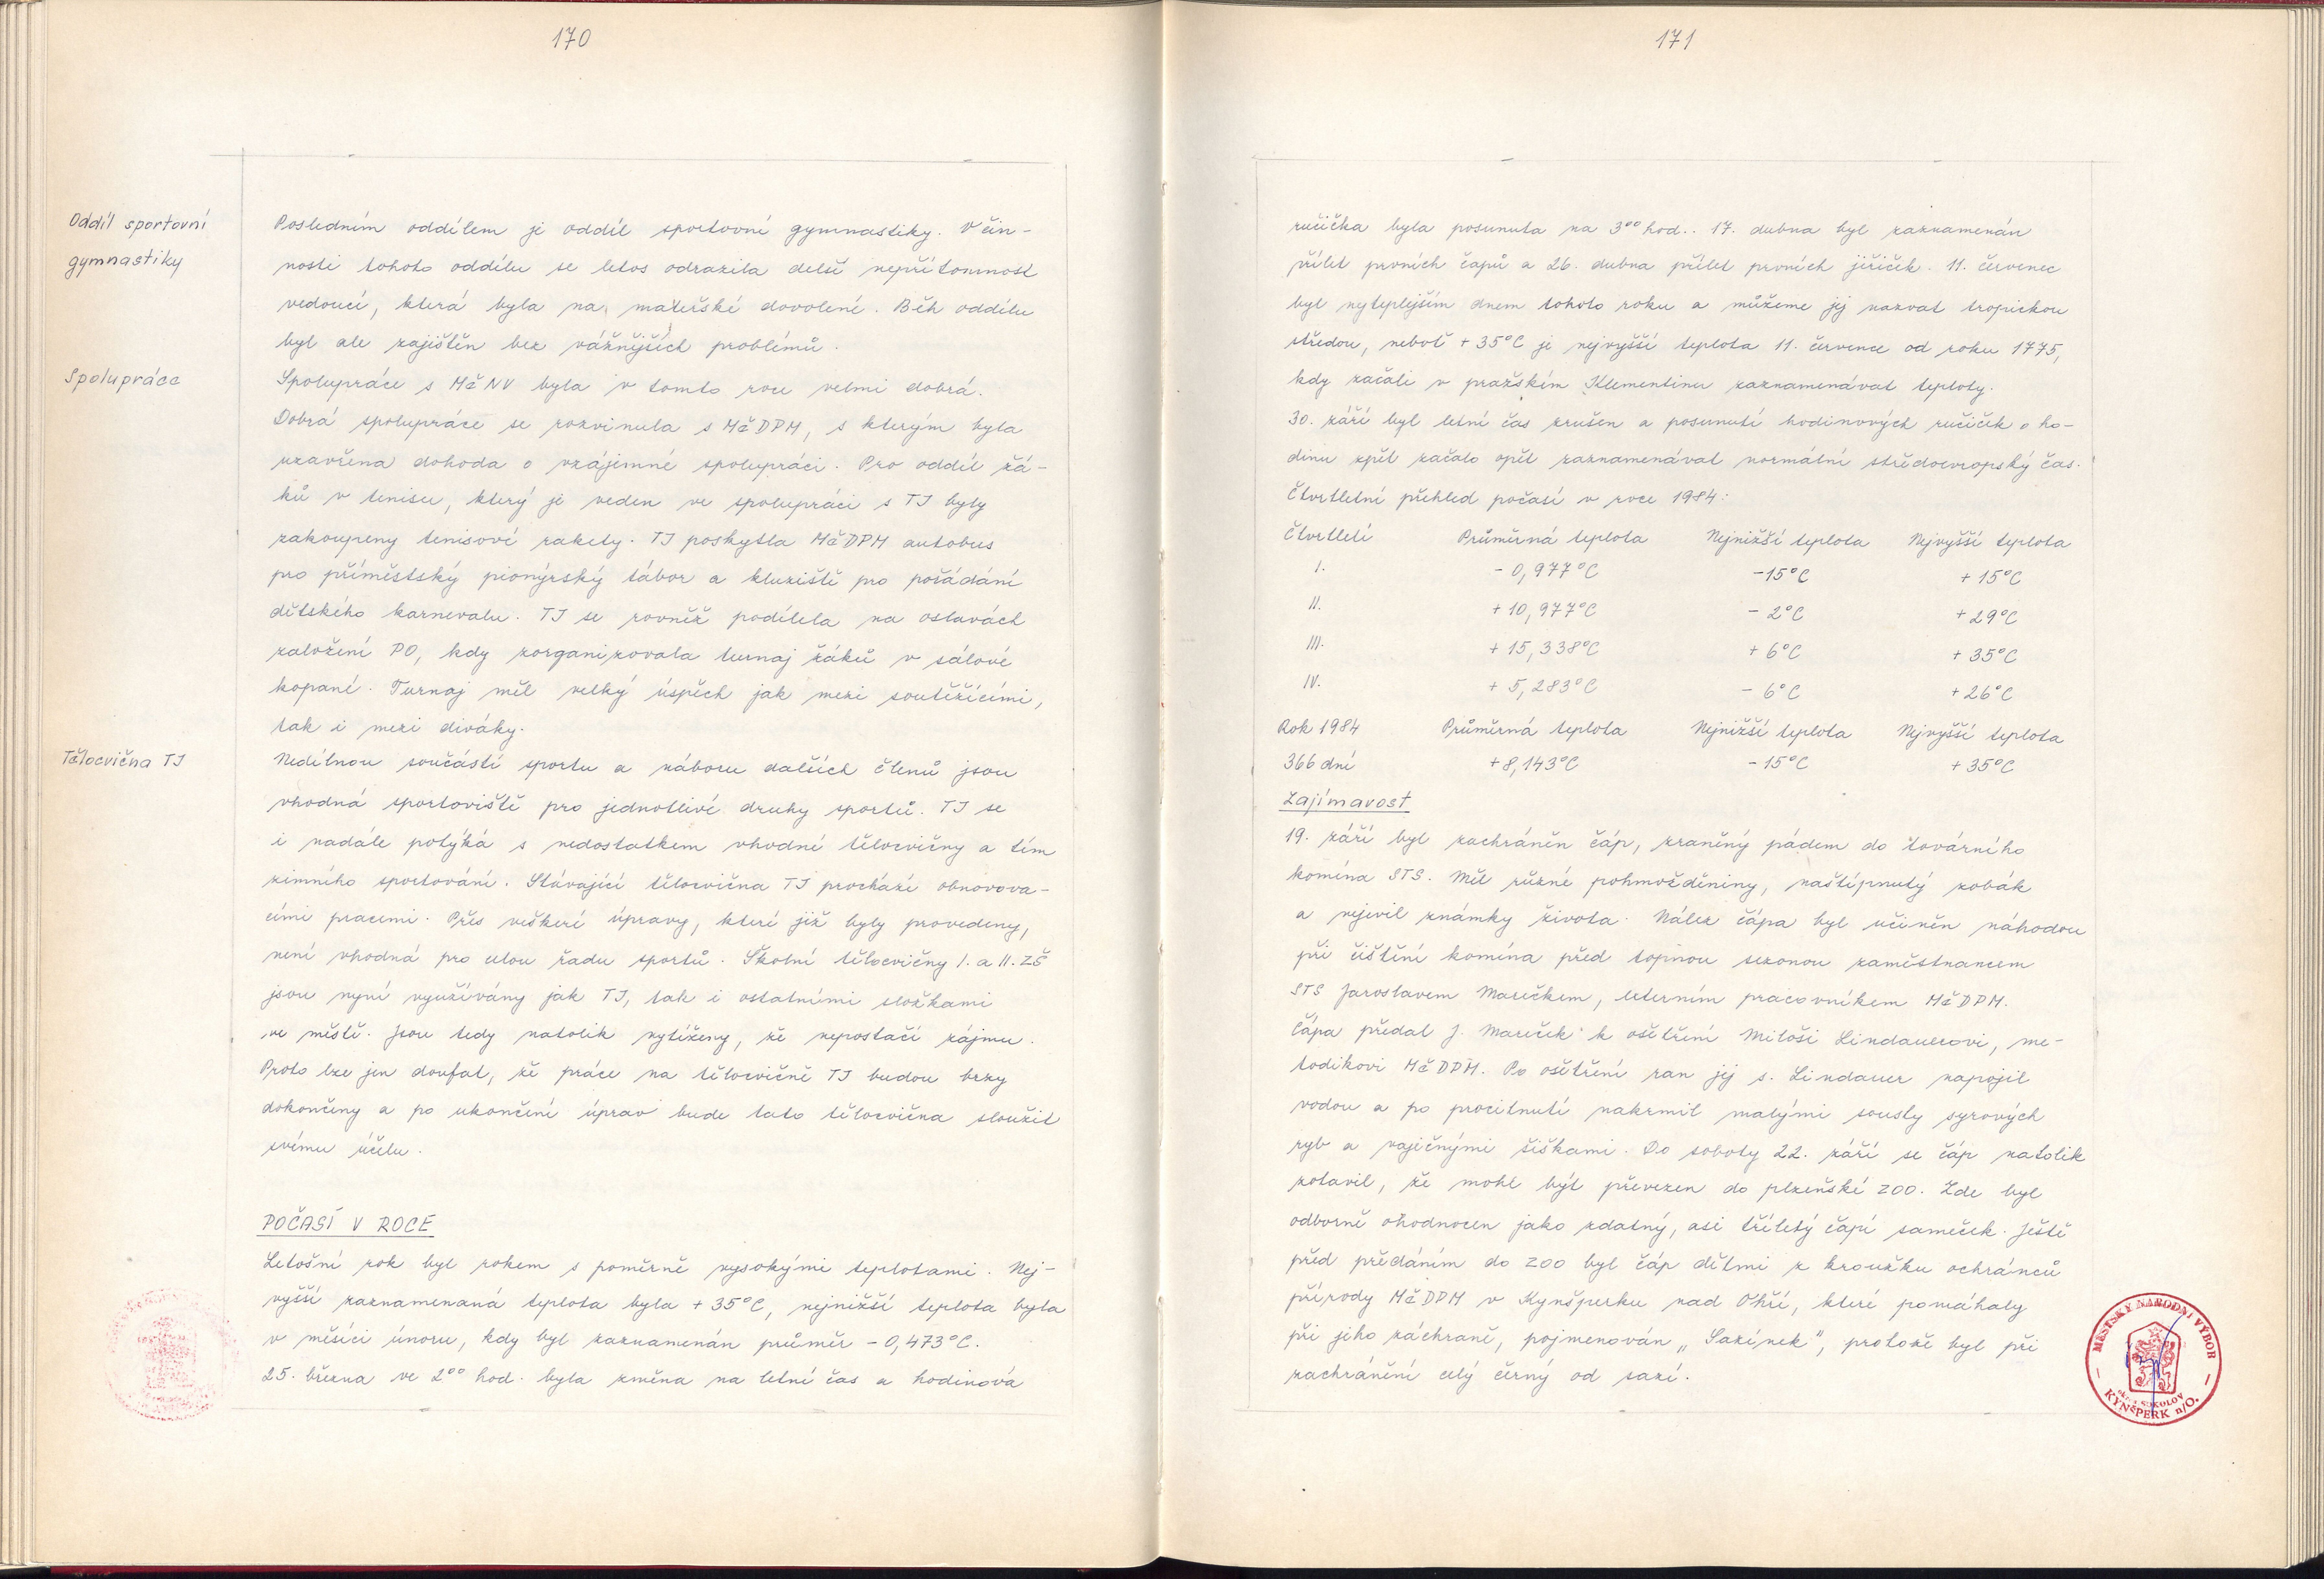 170
Oddíl sportovní
gymnastiky
Posledním oddílem je oddíl sportovní gymnastiky. V čin-
nosti tohoto oddílu se letos odrazila delší nepřítomnost
vedoucí, která byla na mateřské dovolené. Běh oddílu
byl ale zajištěn bez vážnějších problémů.
Spolupráce
Spolupráce s MěNV byla v tomto roce velmi dobrá.
Dobrá spolupráce se rozvinula s MěDPM, s kterým byla
uzavřena dohoda o vzájemné spolupráci. Pro oddíl žá-
ků v tenisu, který je veden ve spolupráci s TJ byly
zakoupeny tenisové rakety. TJ poskytla MěDPM autobus
pro příměstský pionýrský tábor a kluziště pro pořádání
dětského karnevalu. TJ se rovněž podílela na oslavách
založení PO, kdy zorganizovala turnaj žáků v sálové
kopané. Turnaj měl velký úspěch jak mezi soutěžícími,
tak i mezi diváky.
Tělocvična TJ
Nedílnou součástí sportu a náboru dalších členů jsou
vhodná sportoviště pro jednotlivé druhy sportů. TJ se
i nadále potýká s nedostatkem vhodné tělocvičny a tím
zimního sportování. Stávající tělocvična TJ prochází obnovova-
cími pracemi. Přes veškeré úpravy, které již byly provedeny,
není vhodná pro celou řadu sportů. Školní tělocvičny I. a II. ZŠ
jsou nyní využívány jak TJ, tak i ostatními složkami
ve městě. Jsou tedy natolik vytíženy, že nepostačí zájmu.
Proto lze jen doufat, že práce na tělocvičně TJ budou brzy
dokončeny a po ukončení úprav bude tato tělocvična sloužit
svému účelu.
POČASÍ V ROCE
Letošní rok byl rokem s poměrně vysokými teplotami. Nej-
vyšší zaznamenaná teplota byla +35°C, nejnižší teplota byla
v měsíci únoru, kdy byl zaznamenán průměr -0,473°C.
25. března ve 2⁰⁰ hod. byla změna na letní čas a hodinová
171
ručička byla posunuta na 3⁰⁰ hod.. 17. dubna byl zaznamenán
přílet prvních čapů a 26. dubna přílet prvních jiřiček. 11. červenec
byl nejteplejším dnem tohoto roku a můžeme jej nazvat tropickou
středou, neboť +35°C je nejvyšší teplota 11. července od roku 1775,
kdy začali v pražském Klementinu zaznamenávat teploty.
30. září byl letní čas zrušen a posunutí hodinových ručiček o ho-
dinu zpět začalo opět zaznamenávat normální středoevropský čas.
Čtvrtletní přehled počasí v roce 1984:
Čtvrtletí Průměrná teplota Nejnižší teplota Nejvyšší teplota
I. -0,977°C -15°C +15°C
II. +10,977°C -2°C +29°C
III. +15,338°C +6°C +35°C
IV. +5,283°C -6°C +26°C
Rok 1984 Průměrná teplota Nejnižší teplota Nejvyšší teplota
366 dní +8,143°C -15°C +35°C
Zajímavost
19. září byl zachráněn čáp, zraněný pádem do továrního
komína STS. Měl různé pohmožděniny, naštípnutý zobák
a nejevil známky života. Nález čápa byl učiněn náhodou
při čištění komína před topnou sezonou zaměstnancem
STS Jaroslavem Marečkem, externím pracovníkem MěDPM.
Čápa předal J. Mareček k ošetření Miloši Lindauerovi, me-
todikovi MěDPM. Po ošetření ran jej s. Lindauer napojil
vodou a po procitnutí nakrmil malými sousty syrových
ryb a vaječnými šiškami. Do soboty 22. září se čáp natolik
zotavil, že mohl být převezen do plzeňské ZOO. Zde byl
odborně ohodnocen jako zdatný, asi tříletý čapí sameček. Ještě
před předáním do ZOO byl čáp dětmi z kroužku ochránců
přírody MěDPM v Kynšperku nad Ohří, které pomáhaly
při jeho záchraně, pojmenován „Sazínek", protože byl při
zachránění celý černý od sazí.
MĚSTSKÝ NÁRODNÍ VÝBOR
okr. SOKOLOV
KYNŠPERK n/O.